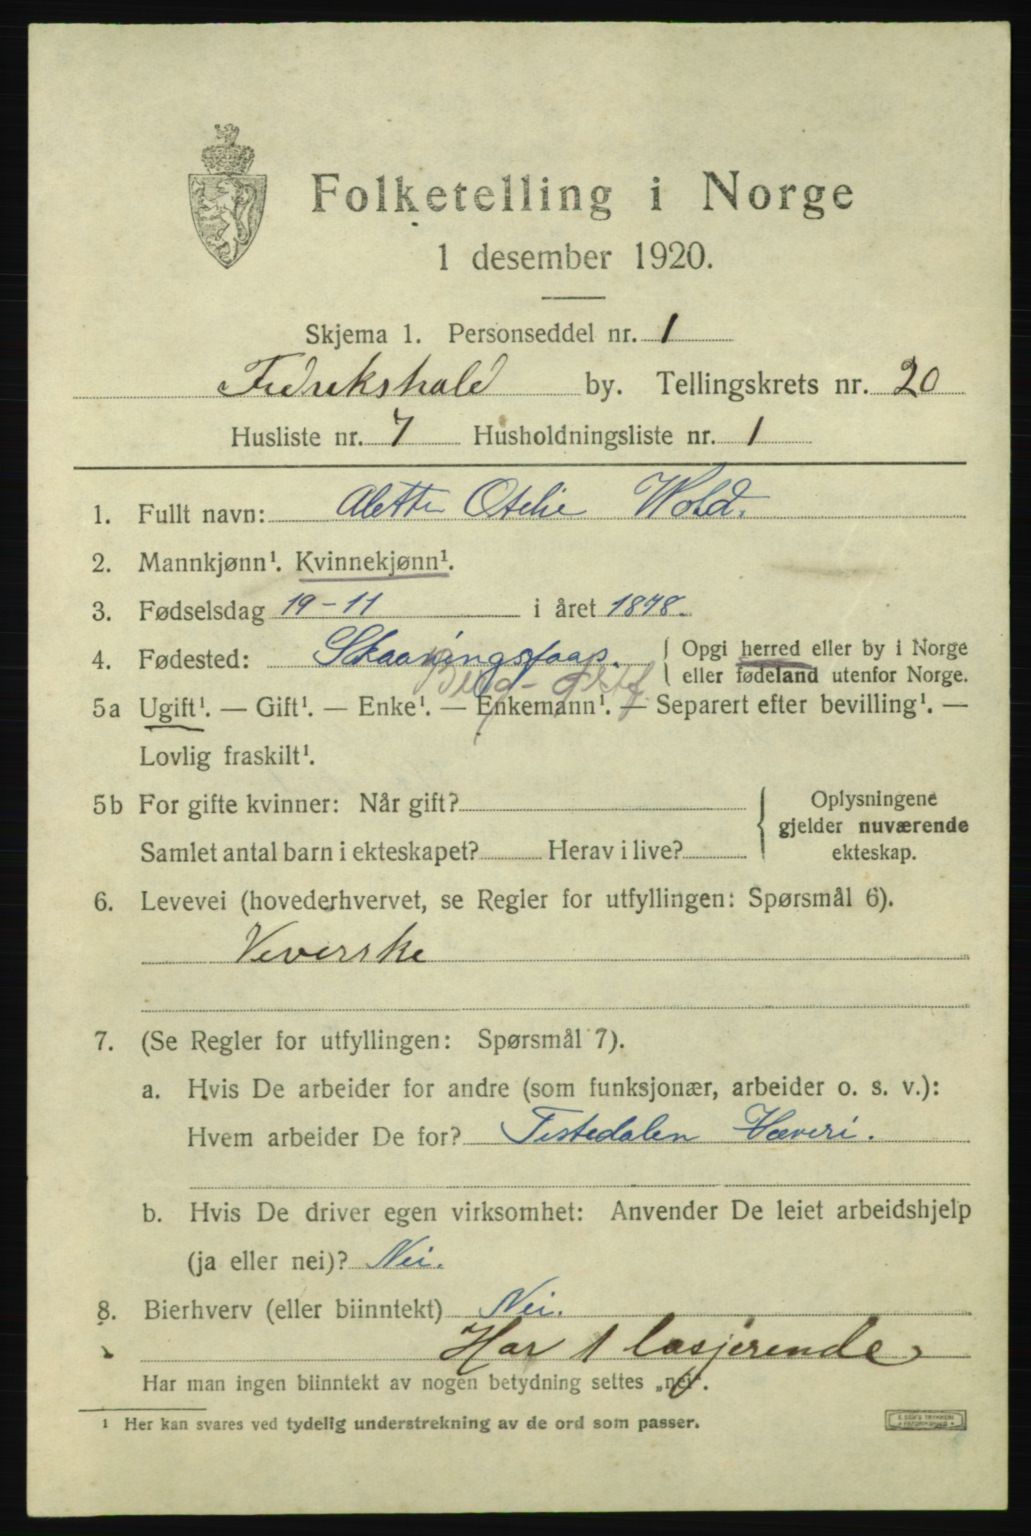 Folketelling i Norge
1 desember 1920.
Skjema 1. Personseddel nr. 1
Fredrikshald by. Tellingskrets nr. 20
Husliste nr. 7 Husholdningsliste nr. 1
1. Fullt navn: Alette Otelie Wold.
2. Mannkjønn¹. Kvinnekjønn¹.
3. Fødselsdag 19-11 i året 1878.
4. Fødested: Skaaningsfoss. { Opgi herred eller by i Norge
eller fødeland utenfor Norge.
5a Ugift¹. — Gift¹. — Enke¹. — Enkemann¹. — Separert efter bevilling¹. —
Lovlig fraskilt¹.
5b For gifte kvinner: Når gift? { Oplysningene
gjelder nuværende
Samlet antal barn i ekteskapet? Herav i live? ekteskap.
6. Levevei (hovederhvervet, se Regler for utfyllingen: Spørsmål 6).
Veverske
7. (Se Regler for utfyllingen: Spørsmål 7).
a. Hvis De arbeider for andre (som funksjonær, arbeider o. s. v.):
Hvem arbeider De for? Tistedalen Væveri.
b. Hvis De driver egen virksomhet: Anvender De leiet arbeidshjelp
(ja eller nei)? Nei.
8. Bierhverv (eller biinntekt) Nei.
Har 1 losjerende
Har man ingen biinntekt av nogen betydning settes „nei".
¹ Her kan svares ved tydelig understrekning av de ord som passer.